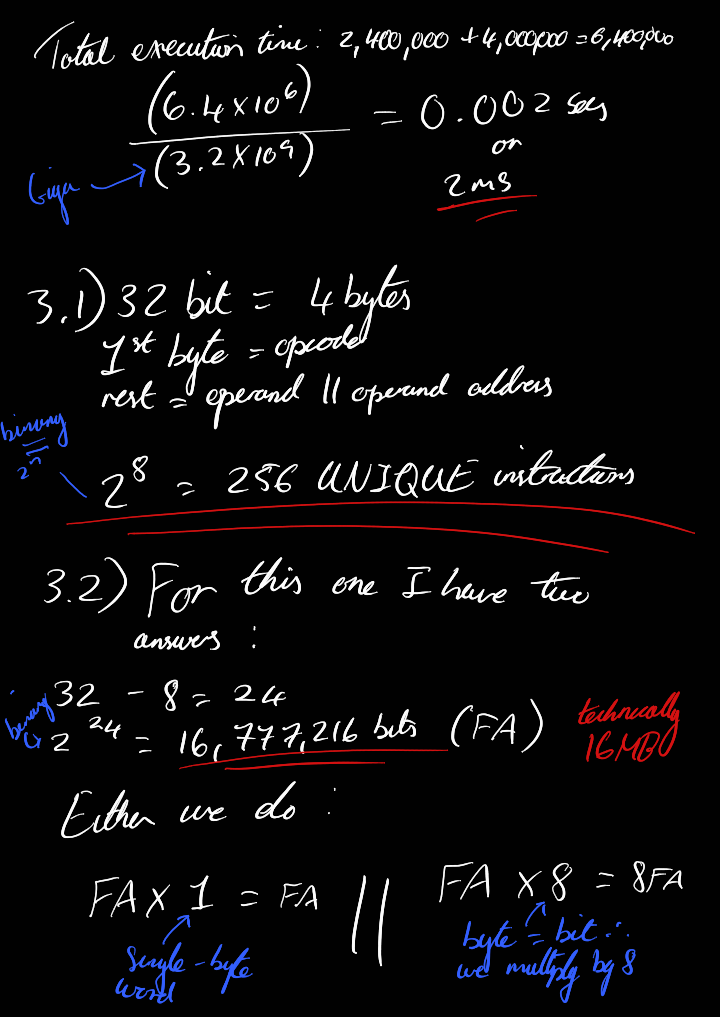 Total execution time: 2,400,000 + 4,000,000 = 6,400,000
(6.4 x 10^6)
= 0.002 secs
(3.2 x 10^9)
Giga
or
2 ms
3.1) 32 bit = 4 bytes
1st byte = opcode
rest = operand || operand address
binary
2^n
2^8 = 256 UNIQUE instructions
3.2) For this one I have two
answers :
32 - 8 = 24
binary
2^24 = 16,777,216 bits (FA)
technically
16MB
Either we do :
FA x 1 = FA || FA x 8 = 8FA
single-byte
word
byte = bit ∴
we multiply by 8